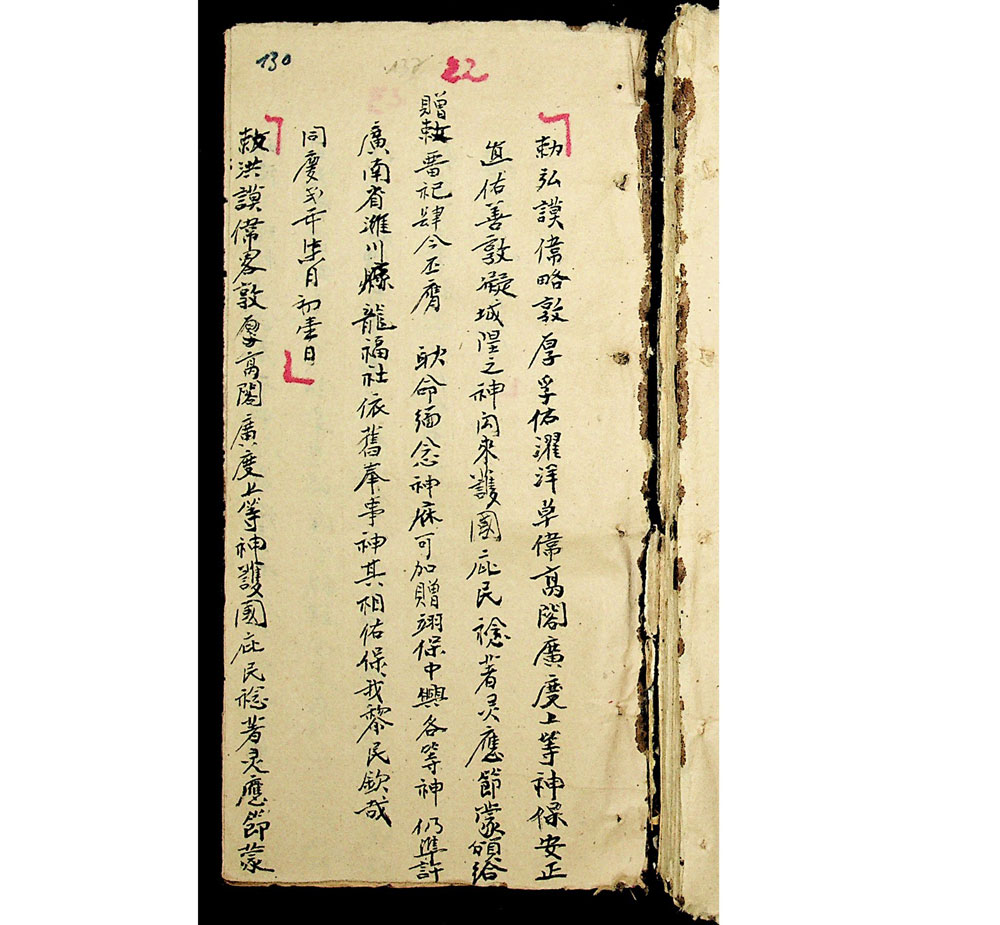 130
22
勅弘謨偉略敦厚孚佑濯洋卓偉高閣廣度上等神保安正
直佑善敦凝城隍之神向來護國庇民稔著灵應節蒙頒給
贈敕晉祀肆今丕膺 耿命緬念神庥可加贈翊保中興各等神仍準許
廣南省濰川縣龍福社依舊奉事神其相佑保我黎民欽哉
同慶弍年柒月初壹日
敕洪謨偉畧敦厚高閣廣度上等神護國庇民稔著灵應節蒙